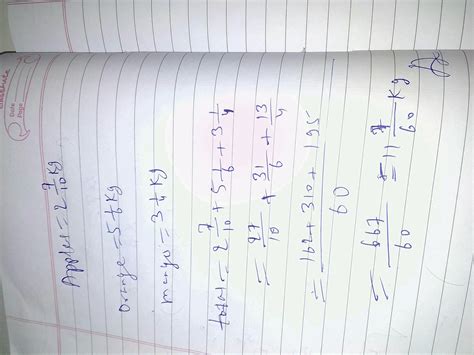 classmate
Date
Page
Apples = 2 7/10 kg
orange = 5 1/6 kg
mango = 3 1/4 kg
total = 2 7/10 + 5 1/6 + 3 1/4
= 27/10 + 31/6 + 13/4
= 162 + 310 + 195 / 60
= 667/60 = 11 7/60 kg